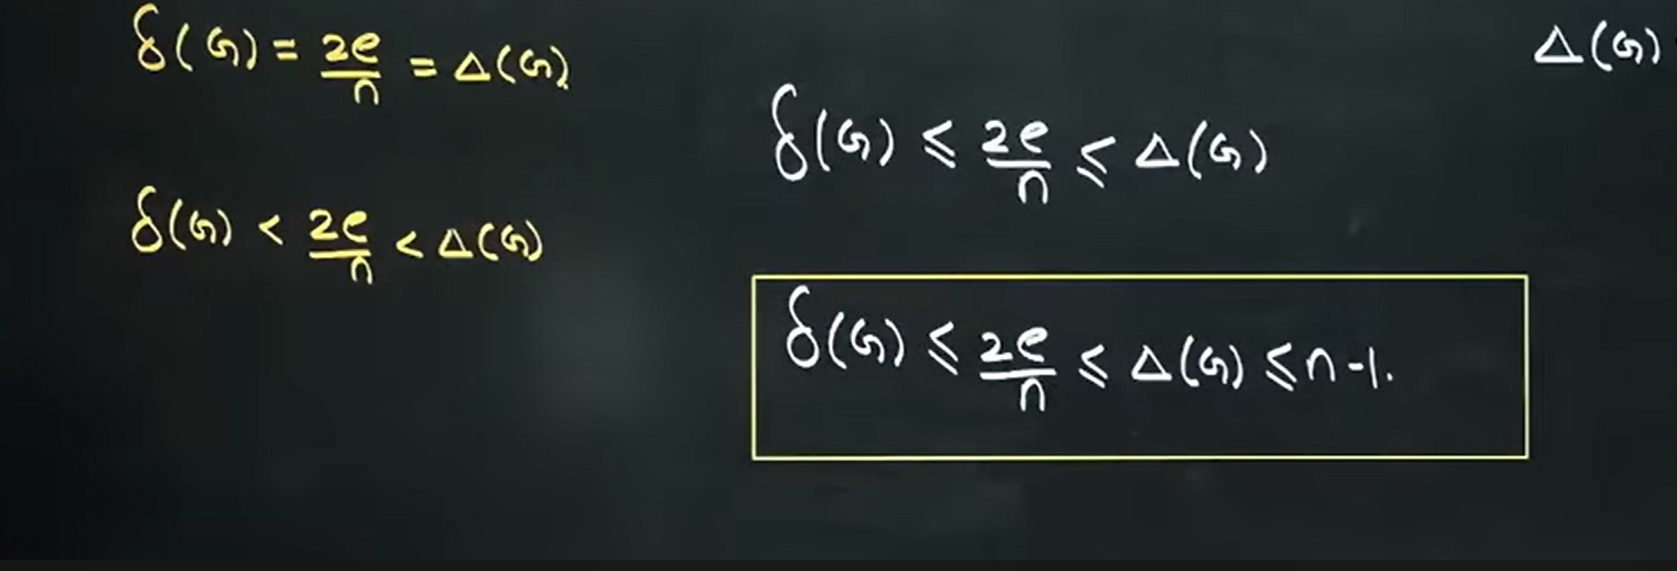 δ(G) = 2e/n = Δ(G)
δ(G) < 2e/n < Δ(G)
Δ(G)
δ(G) ≤ 2e/n ≤ Δ(G)
δ(G) ≤ 2e/n ≤ Δ(G) ≤ n-1.